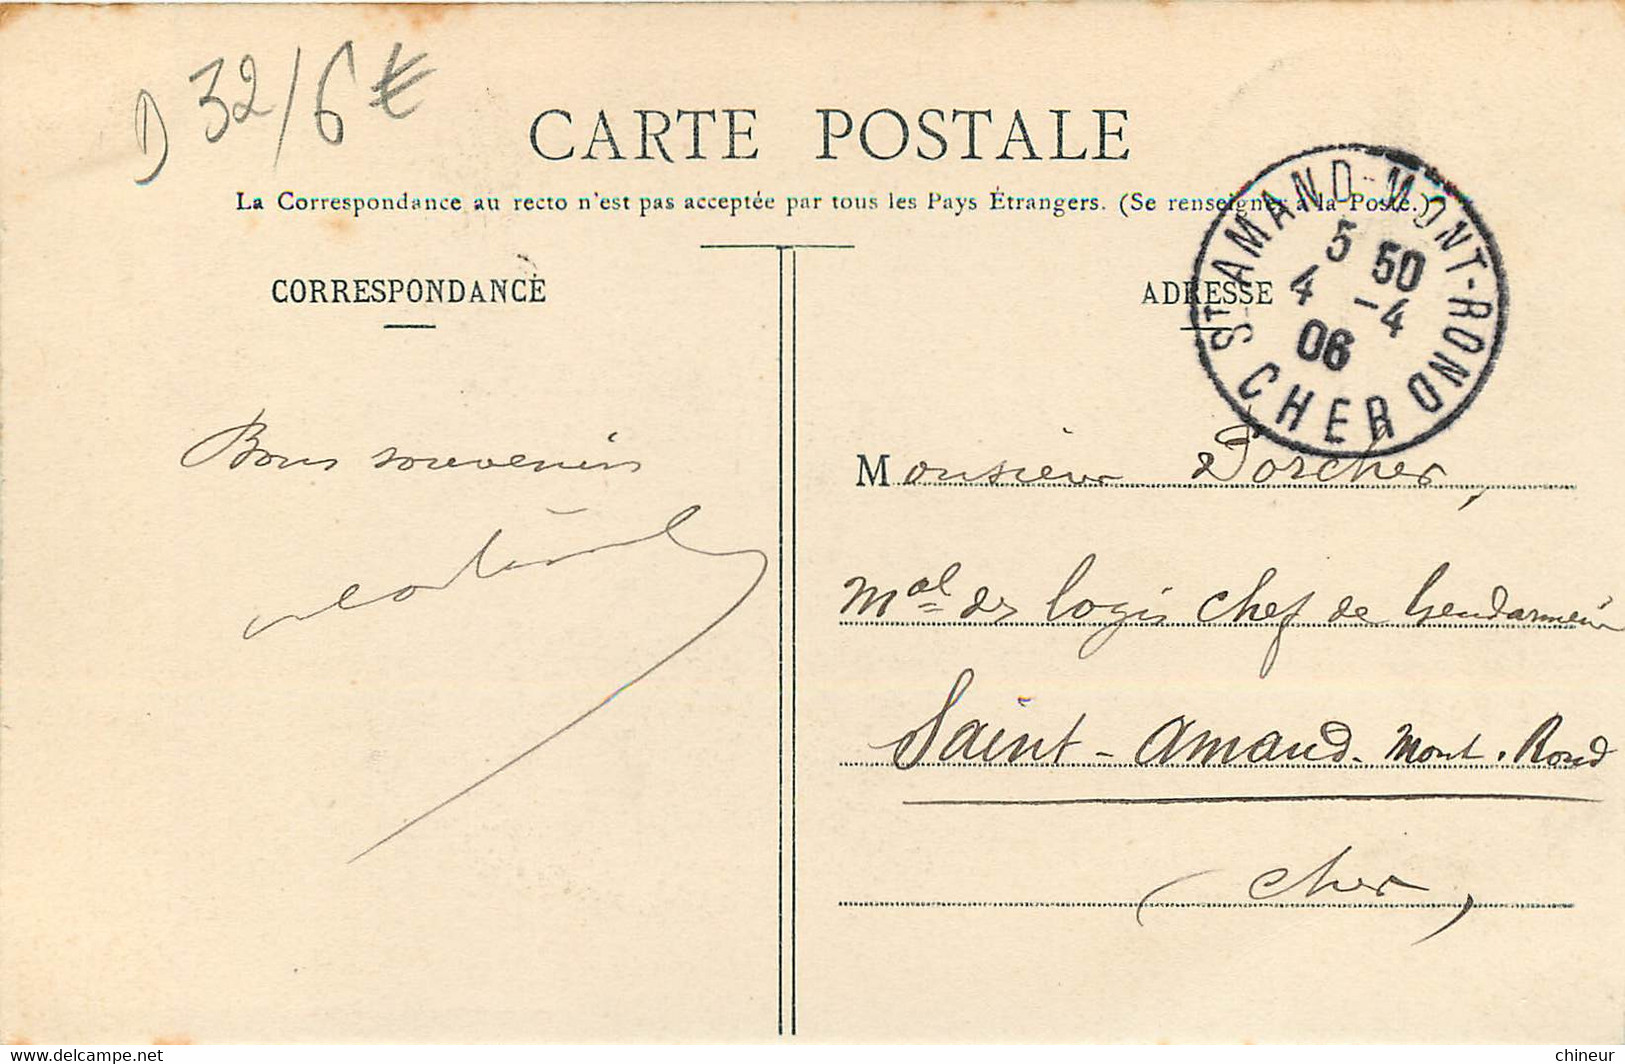 D 32/6€
CARTE POSTALE
La Correspondance au recto n'est pas acceptée par tous les Pays Étrangers. (Se renseigner à la Poste.)
CORRESPONDANCE
ADRESSE
ST AMAND-MONT-ROND
5 50
4 -4
06
CHER
Bons souvenirs
Monsieur Porcher,
Mal des logis chef de Gendarmerie
Saint-Amand-Mont-Rond
(Cher)
www.delcampe.net
chineur